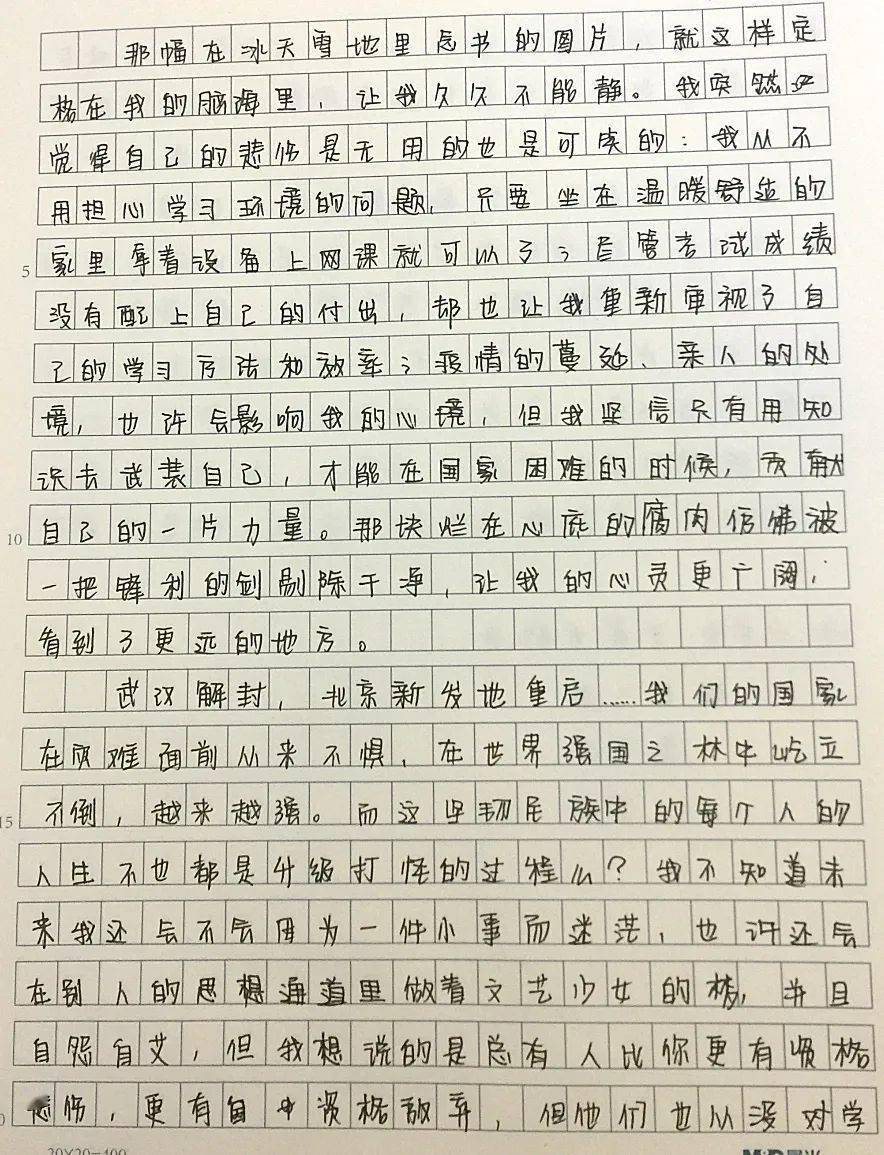 那幅在冰天雪地里念书的图片，就这样定
格在我的脑海里，让我久久不能静。我突然
觉得自己的悲伤是无用的也是可笑的：我从不
用担心学习环境的问题，只要坐在温暖舒适的
5 家里拿着设备上网课就可以了；尽管考试成绩
没有配上自己的付出，却也让我重新审视了自
己的学习方法和效率；疫情的蔓延、亲人的处
境，也许会影响我的心境，但我坚信只有用知
识去武装自己，才能在国家困难的时候，贡献
10 自己的一片力量。那块烂在心底的腐肉仿佛被
一把锋利的剑剔除干净，让我的心灵更广阔，
看到了更远的地方。
武汉解封，北京新发地重启……我们的国家
在灾难面前从来不惧，在世界强国之林中屹立
15 不倒，越来越强。而这坚韧民族中的每个人的
人生不也都是升级打怪的过程么？我不知道未
来我还会不会因为一件小事而迷茫，也许还会
在别人的思想海道里做着文艺少女的梦，并且
自怨自艾，但我想说的是总有人比你更有资格
悲伤，更有资格放弃，但他们也从没对学
20×20=400
M&G 晨光